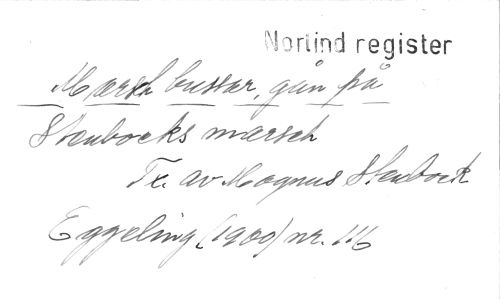 Norlind register
Marsch bussar, gån på
Stenbocks marsch
Tx. av Magnus Stenbock
Eggeling (1900) nr. 116